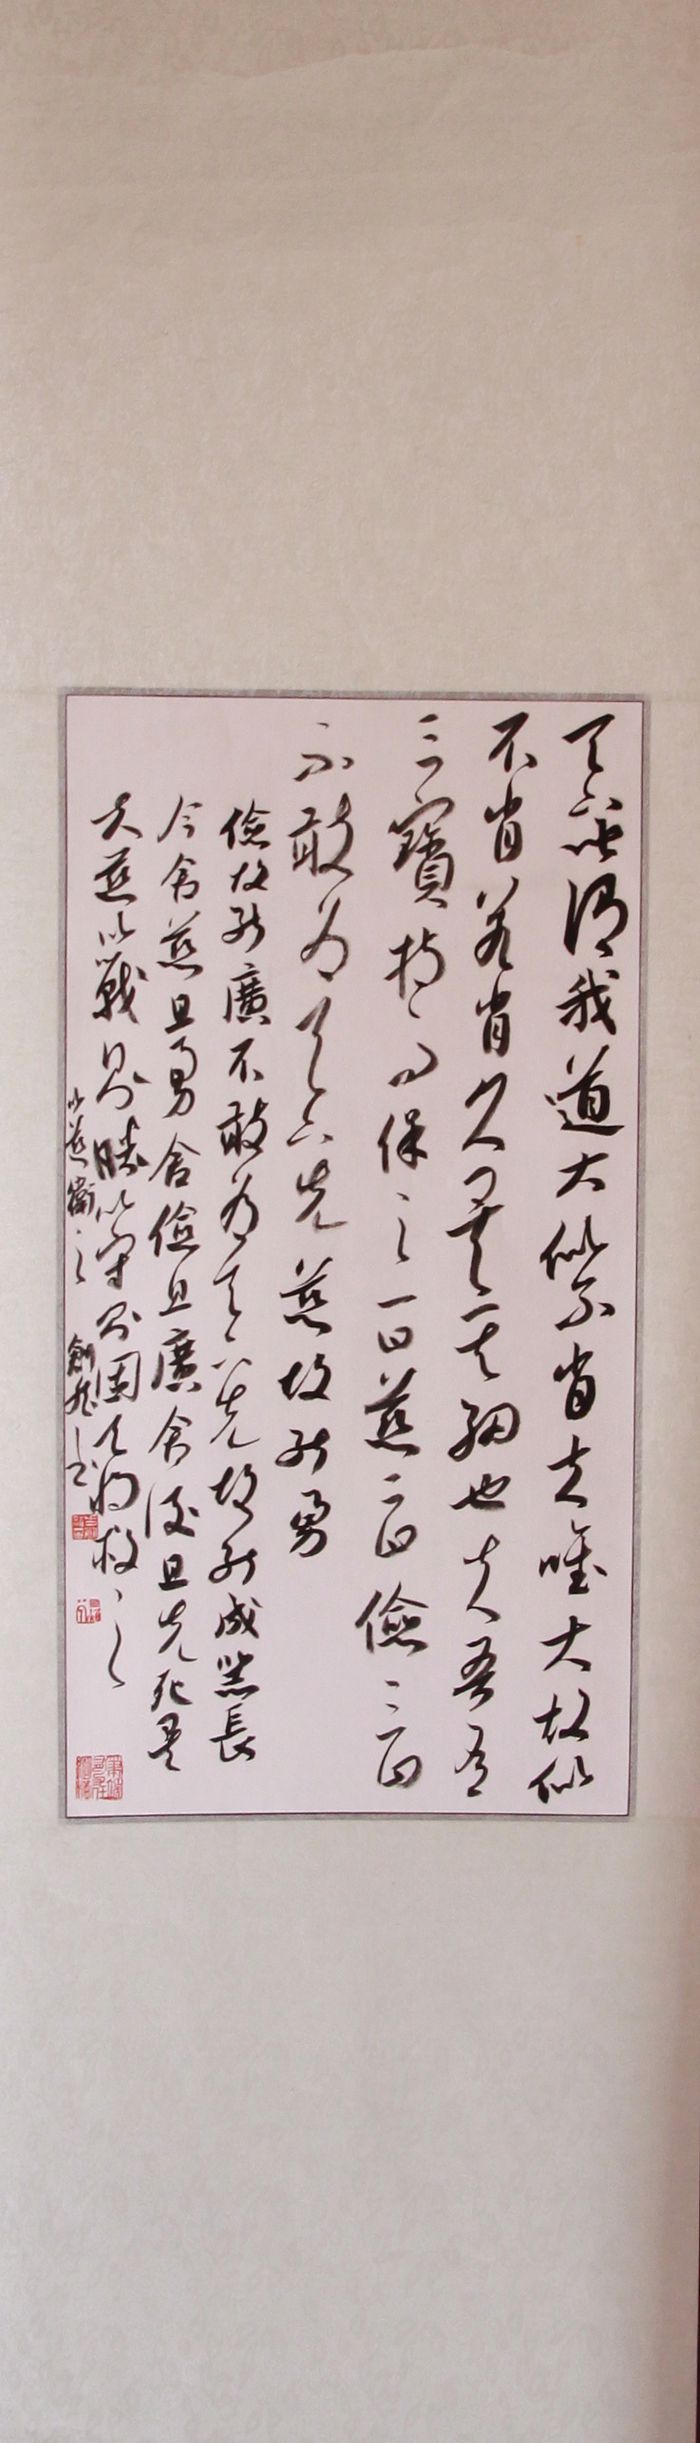 天下皆謂我道大似不肖夫唯大故似
不肖若肖久矣其細也夫吾有
三寶持而保之一曰慈二曰儉三曰
不敢為天下先慈故能勇
儉故能廣不敢為天下先故能成器長
今舍慈且勇舍儉且廣舍後且先死矣
夫慈以戰則勝以守則固天將救之
以慈衛之